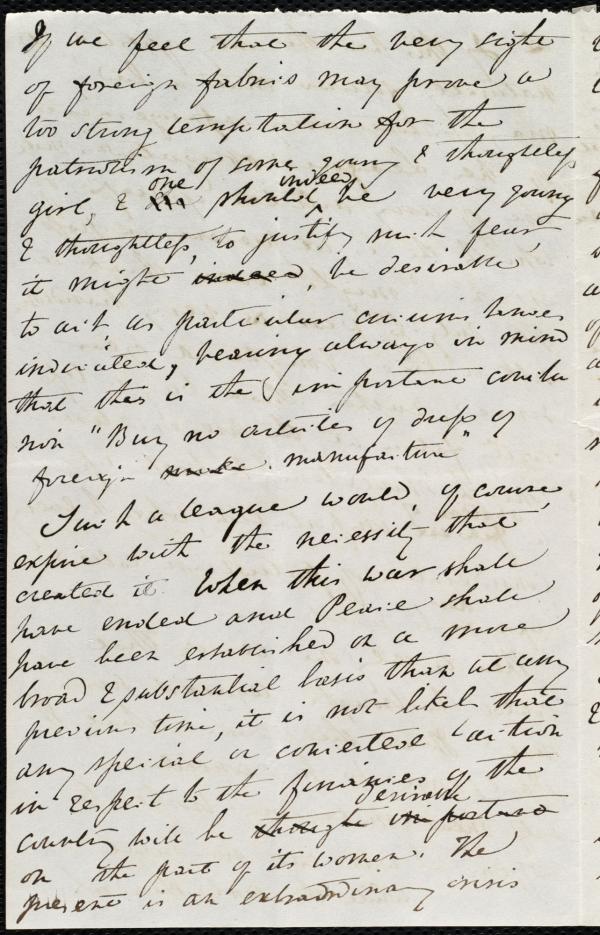 If we feel that the very sight
of foreign fabrics may prove a
too strong temptation for the
patriotism of some young & thoughtless
girl, & one should indeed be very young
& thoughtless, to justify such fear,
it might indeed, be desirable
to act as particular circumstances
indicated, bearing always in mind
that this is the important conclu
sion "Buy no articles of dress of
foreign make manufacture"
Such a league would, of course,
expire with the necessity that
created it. When this war shall
have ended and Peace shall
have been established on a more
broad & substantial basis than at any
previous time, it is not likely that
any special or concerted action
in respect to the finances of the
country will be thought important desirable
on the part of its women. The
present is an extraordinary crisis